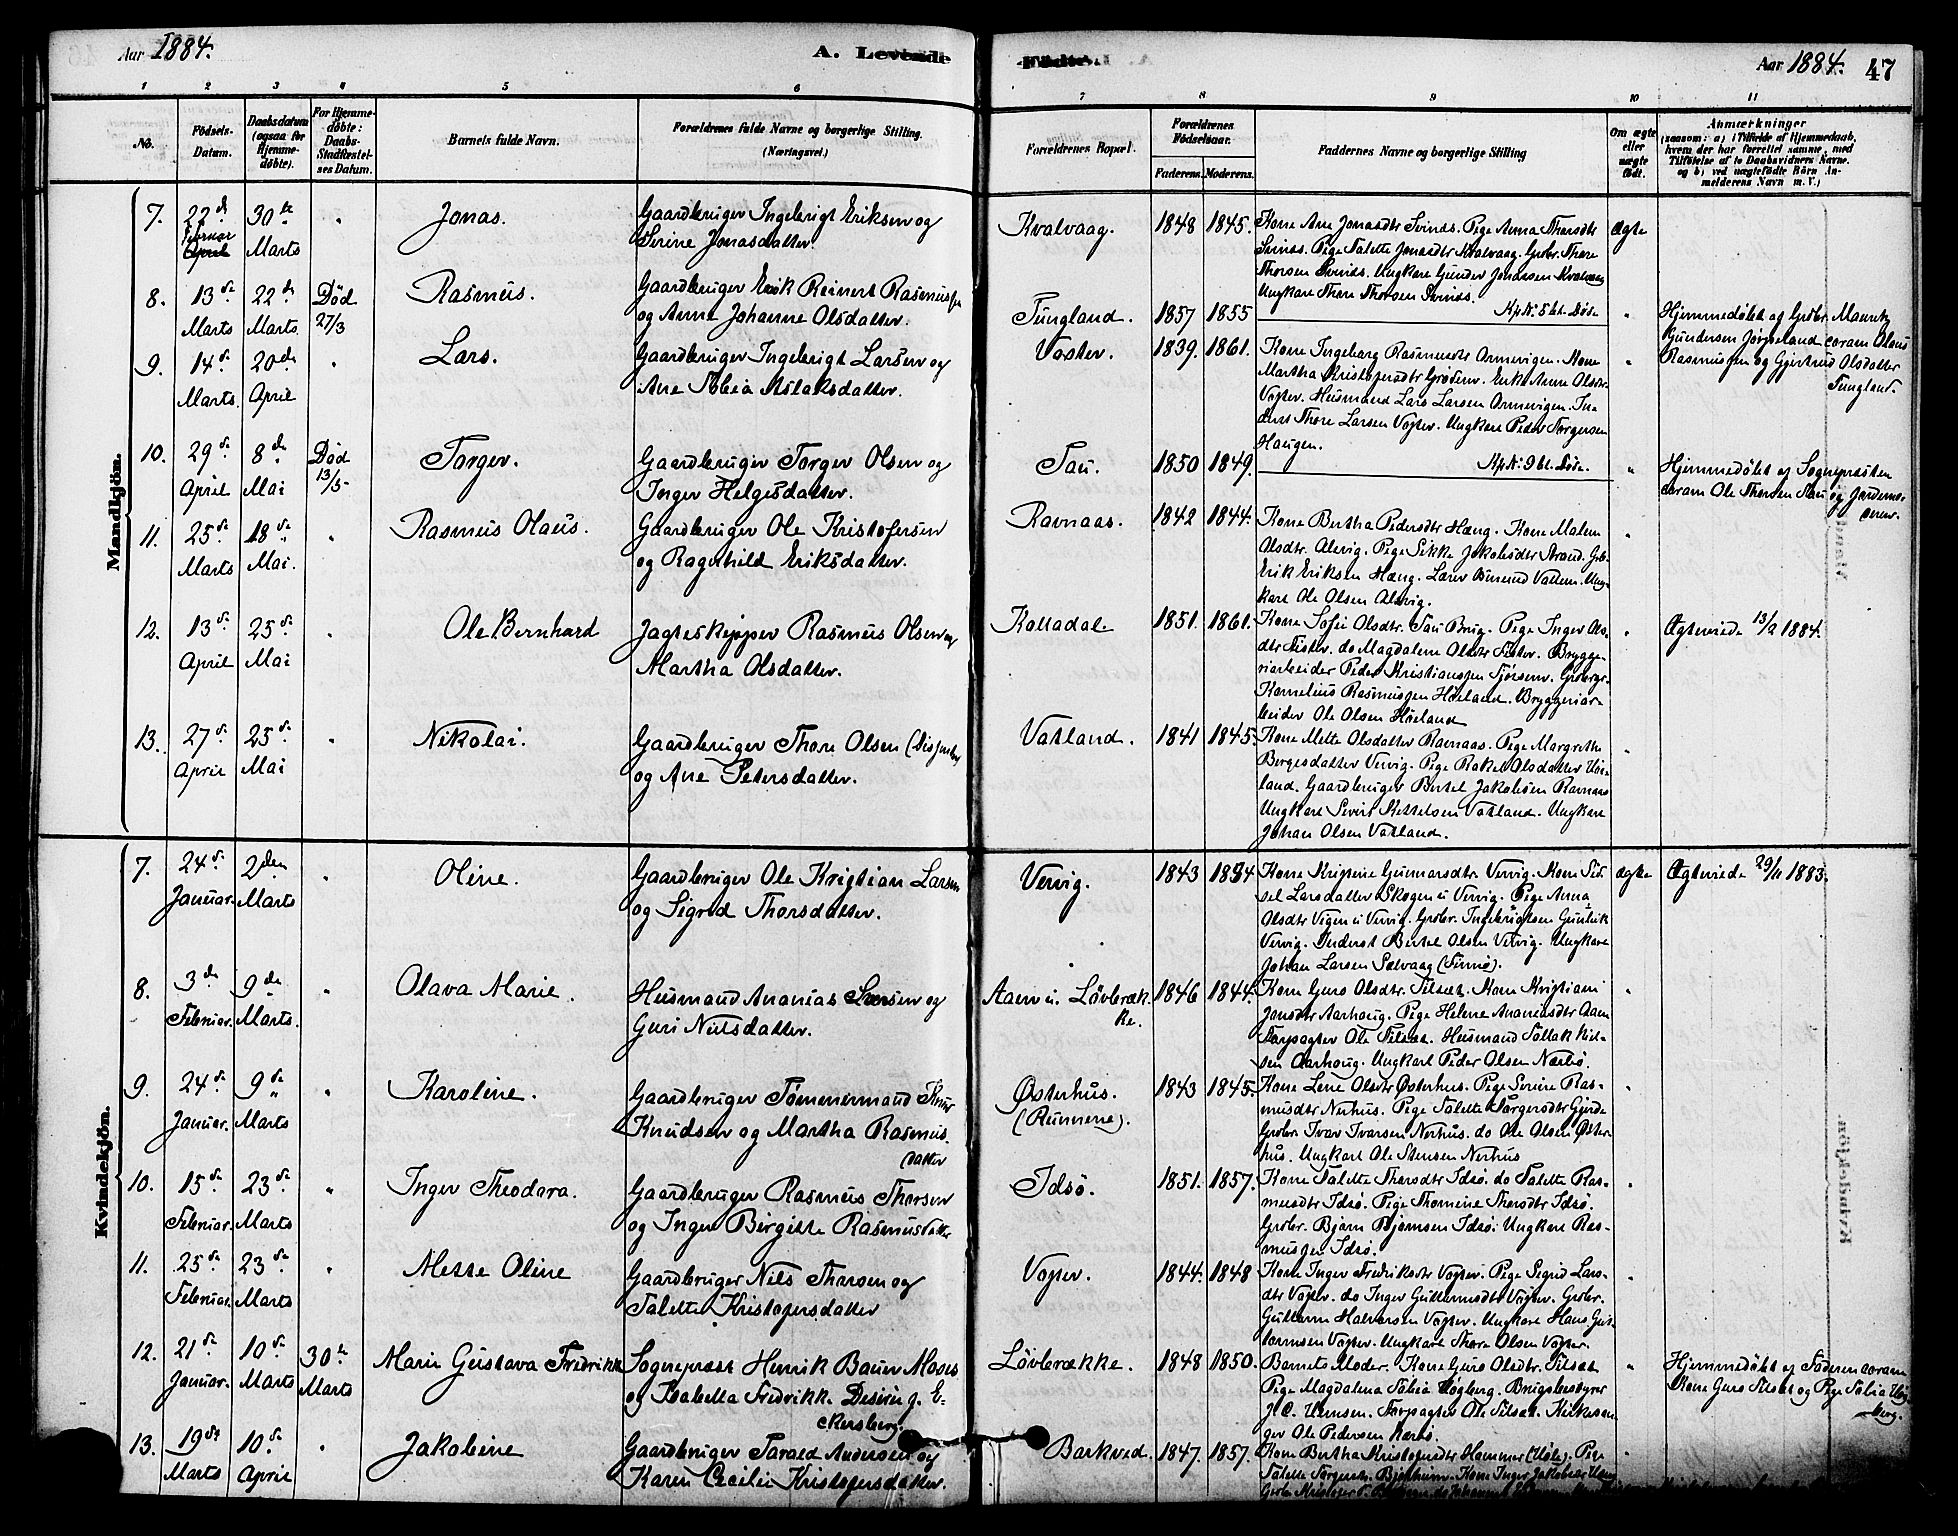 Aar 1884.
A. Levende Fødte.
Aar 1884. 47
1 2 3 4 5 6 7 8 9 10 11
No.
Fødsels-
Datum.
Daabsdatum
(ogsaa for
Hjemme-
døbte).
For Hjemme-
døbte:
Daabs-
Stadfæstel-
ses Datum.
Barnets fulde Navn.
Forældrenes fulde Navne og borgerlige Stilling.
(Næringsvei.)
Forældrenes Bopæl.
Forældrenes
Fødselsaar.
Faderens. Moderens.
Faddernes Navne og borgerlige Stilling
Om ægte
eller
uægte
født.
Anmærkninger
(saasom: a) i Tilfælde af Hjemmedaab,
hvem der har forrettet samme, med
Tilføielse af to Daabsvidners Navne.
og b) ved uægtefødte Børn An-
melderens Navn m. V.)
Mandkjön.
7. 22d Februar April 30te Marts " Jonas.
Gaardbruger Ingebrigt Eriksen og
Serine Jonasdatter.
Kvalvaag. 1848 1845.
Kone Ane Jonasdtr Svines. Pige Anna Thorsdtr
Svines. Pige Talette Jonasdtr Kvalvaag. Grbr. Thore
Thorsen Svines. Ungkarl Gunder Jonassen Kvalvaag
Ungkarl Thore Thorsen Svines.
Ægte
8. 13de Marts 22de Marts Død 27/3 Rasmus.
Gaardbruger Erik Reinert Rasmussen
og Anne Johanne Olsdatter.
Tungland. 1857 1855
Kp. No. 5 bl. Døde "
Hjemmedøbt af Grbr. Mauritz
Gundersen Jørpeland coram Olaus
Rasmussen og Gjertrud Olsdatter
Tungland.
9. 14de Marts 20de April " Lars.
Gaardbruger Ingebrigt Larsen og
Ane Tobia Aslaksdatter.
Voster. 1839. 1861.
Kone Ingeborg Rasmusdtr Ormevigen. Kone
Martha Kristofersdtr Grøden. Enke Anne Olsdtr
Voster. Husmand Lars Larsen Ormevigen. In-
derst Thore Larsen Voster. Ungkarl Peder Torgersen
Haugen.
"
10. 29de April 8de Mai Død 13/5 Torger.
Gaardbruger Torger Olsen og
Inger Helgesdatter.
Tau. 1850 1849.
Kp. No. 9 bl. Døde. "
Hjemmedøbt af Sognepresten
coram Ole Thorsen Tau og Jordemo-
deren.
11. 25de Marts 18de Mai " Rasmus Olaus.
Gaardbruger Ole Kristofersen
og Ragnhild Eriksdatter.
Ravnaas. 1842 1844.
Kone Bertha Pedersdtr Hæng. Kone Malene
Olsdtr. Alsvig. Pige Sikke Jakobsdtr Strand. Grb.
Erik Eriksen Hæng. Lærer Vatten. Ung-
karl Ole Olsen Alsvig.
"
12. 13de April 25de Mai " Ole Bernhard
Jagteskipper Rasmus Olsen og
Martha Olsdatter.
Kolladal 1851. 1861.
Kone Sofie Olsdtr. Tau Brug. Pige Inger Ols-
dtr Fister. do Magdalene Olsdtr Fister. Brygge-
riarbeider Peder Kristianssen Fjørsem. Grbrgr.
Kornelius Rasmussen Høiland. Bryggeriar-
beider Ole Olsen Høiland
"
Ægteviede 13/2 1884.
13. 27de April 25de Mai " Nikolai.
Gaardbruger Thore Olsen
og Ane Petersdatter.
Vatland. 1841 1845.
Kone Mette Olsdatter Ravnaas. Pige Margrethe
Børgesdatter Vervig. Pige Rakel Olsdatter Høi-
land. Gaardbruger Bertel Jakobsen Ravnaas
Ungkarl Sivert Kittelsen Vatland. Ungkarl
Johan Olsen Vatland.
"
Kvindekjön.
7. 24de Januar. 2den Marts " Oline.
Gaardbruger Ole Kristian Larsen
og Sigrid Thorsdatter.
Vervig. 1843 1854
Kone Kristine Gunnarsdtr Vervig. Kone Sid-
sel Larsdatter Skogen u. Vervig. Pige Anna
Olsdtr Vigen u. Vervig. Grbr. Ingebrigtsen Gunleik
Vervig. Inderst Bertel Olsen Vervig. Ungkarl
Johan Larsen Selvaag (Finnø).
Ægte
Ægteviede 29/11 1883.
8. 3de Februar. 9de Marts. " Olava Marie.
Husmand Ananias Larsen og
Guri Nilsdatter.
Aaen u. Løvbræk-
ke. 1846 1844.
Kone Guro Olsdtr. Tilset. Kone Kristiane
Jonsdtr Aarhoug. Pige Helene Ananiasdtr Aaen
Forpagter Ole Tilset. Husmand Tollak Niel-
sen Aarhoug. Ungkarl Peder Olsen Nerbø.
"
9. 24de Januar. 9de Marts " Karoline.
Gaardbruger Tømmermand Knud
Knudsen og Martha Rasmus-
datter
Østerhus.
(Rennesø). 1843 1845.
Kone Line Olsdtr Østerhus. Pige Serine Ras-
musdtr Nerhus. Pige Talette Torgersdtr Gjerde
Grbr. Ivar Ivarsen Nerhus. do Ole Olsen Øster-
hus. Ungkarl Ole Stensen Nerhus
"
10. 15de Februar. 23de Marts " Inger Theodora.
Gaardbruger Rasmus Thorsen
og Inger Birgitte Rasmusdatter
Idsø. 1851. 1857.
Kone Talette Thorsdtr Idsø. do Talette Ras-
musdtr Idsø. Pige Thomine Thorsdtr Idsø.
Grbr. Bjørn Bjørnsen Idsø. Ungkarl Ras-
mussen Idsø.
"
11. 25de Februar. 23de Marts " Mette Oline
Gaardbruger Nils Thorsen og
Talette Kristofersdatter
Voster. 1844. 1848
Kone Inger Fredriksdtr Voster. Pige Sigrid Lars-
dtr Voster. do Inger Guttormsdtr Voster. Grbr.
Guttorm Halvorsen Voster. Ungkarl Hans Gut-
tormsen Voster. Ungkarl Thore Olsen Voster.
"
12. 21de Januar. 10de Marts 30te Marts Marie Gustava Fredrikke
Sogneprest Henrik Bauer Moses
og Isabella Fredrikke Desiré g. E-
ckersberg.
Løvbrække. 1848 1850.
Barnets Moder. Kone Guro Olsdtr. Tilset
Pige Magdalena Tobia Høgberg. Brugsbestyrer
J. C. Utensen. Forpagter Ole Tilset. Kirkesan-
ger Ole Pedersen Nerbø.
"
Hjemmedøbt af Faderen coram
Kone Guro Tilset og Pige Tobia Høg-
berg.
13. 19de Marts 10de April " Jakobine
Gaardbruger Tarald Andersen og
Karen Cecilie Kristofersdatter.
Barkved. 1847. 1857.
Kone Bertha Kristofersdtr Hammer (Høle). Pige
Talette Torgersdtr. Bjørheim. Kone Inger Jakobsdtr
"